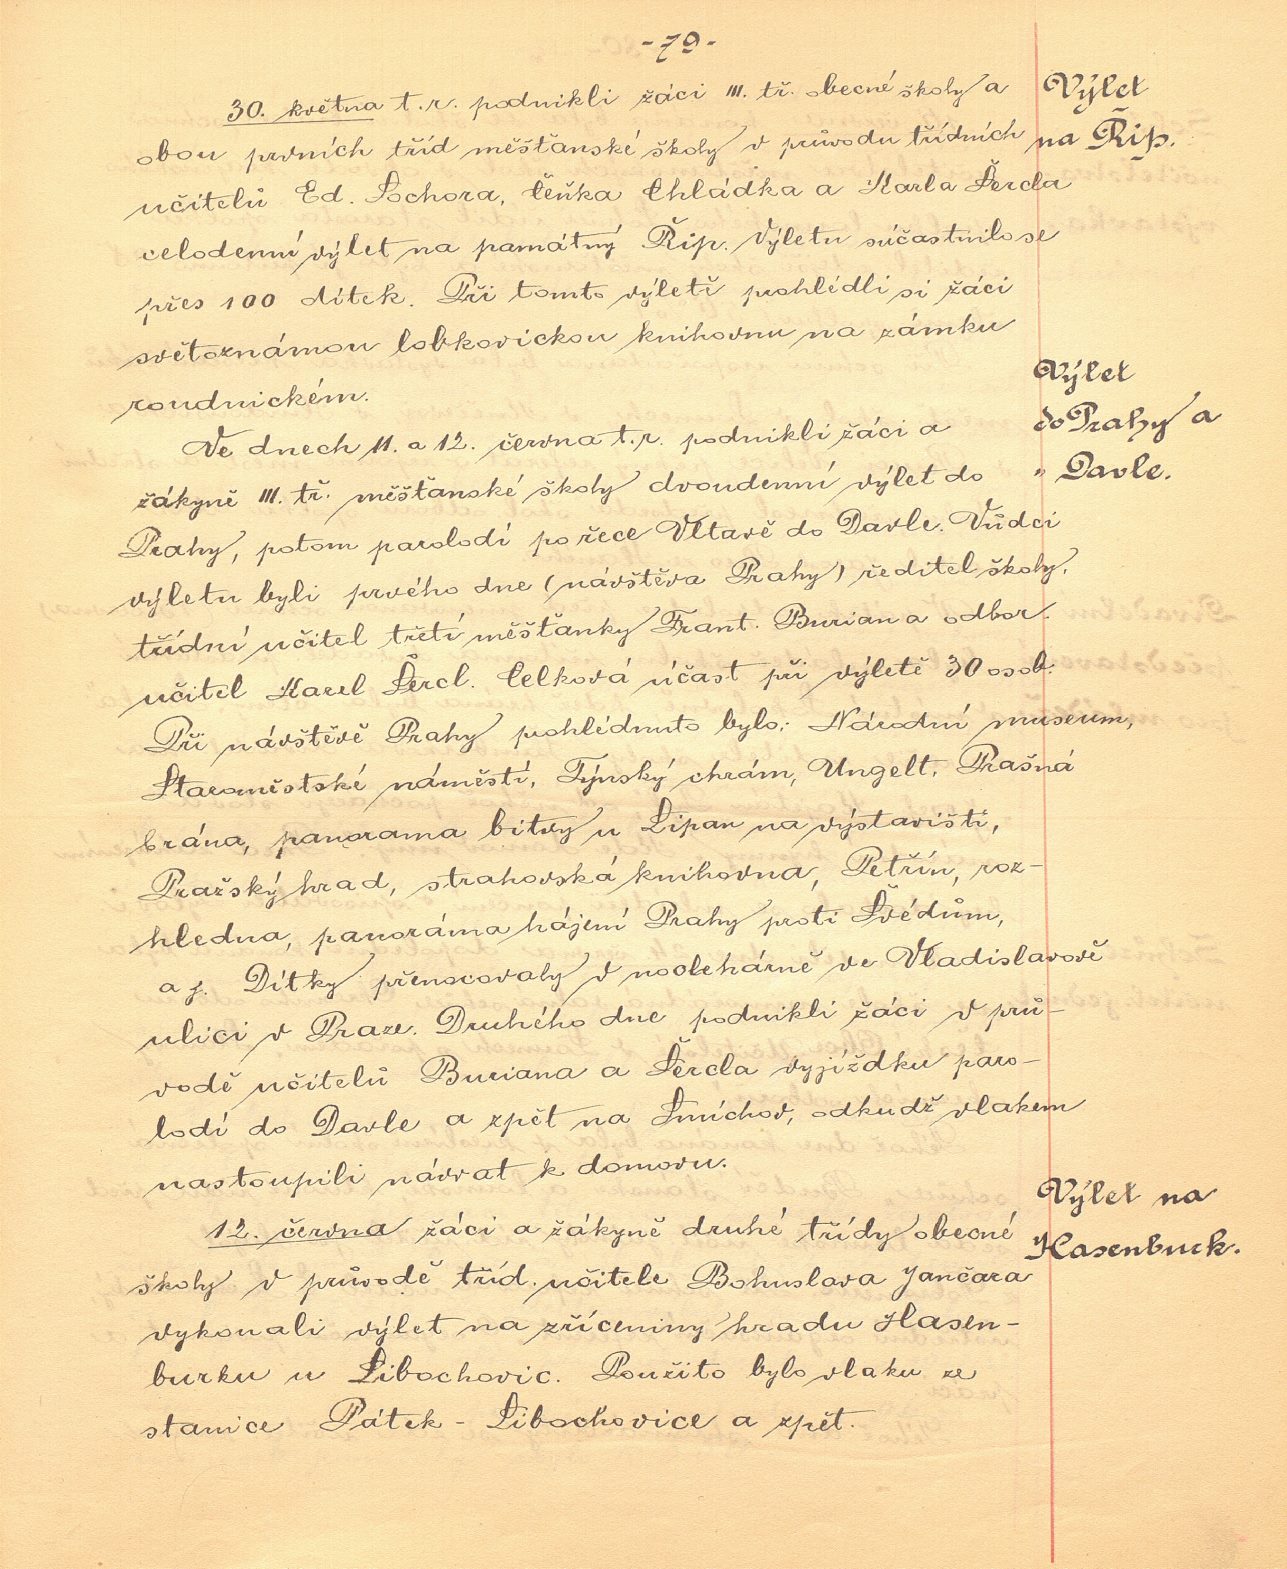 -79-
30. května t.r. podnikli žáci III. tř. obecné školy a
obou prvních tříd měšťanské školy v průvodu třídních
učitelů Ed. Sochora, Čeňka Chládka a Karla Šercla
celodenní výlet na památný Říp. Výletu súčastnilo se
přes 100 dítek. Při tomto výletě prohlédli si žáci
světoznámou lobkovickou knihovnu na zámku
roudnickém.
Výlet
na Říp.
Ve dnech 11. a 12. června t.r. podnikli žáci a
žákyně III. tř. měšťanské školy dvoudenní výlet do
Prahy, potom parolodí po řece Vltavě do Davle. Vůdci
výletu byli prvého dne (návštěva Prahy) ředitel školy,
třídní učitel třetí měšťanky Frant. Burian a odbor.
učitel Karel Šercl. Celková účast při výletě 30 osob.
Při návštěvě Prahy prohlédnuto bylo: Národní museum,
Staroměstské náměstí, Týnský chrám, Ungelt, Prašná
brána, panorama bitvy u Lipan na výstavišti,
Pražský hrad, strahovská knihovna, Petřín, roz-
hledna, panoráma hájení Prahy proti Švédům,
a j. Dítky přenocovaly v noclehárně ve Vladislavově
ulici v Praze. Druhého dne podnikli žáci v prů-
vodě učitelů Buriana a Šercla vyjížďku paro-
lodí do Davle a zpět na Smíchov, odkudž vlakem
nastoupili návrat k domovu.
Výlet
do Prahy a
" Davle.
12. června žáci a žákyně druhé třídy obecné
školy v průvodě tříd. učitele Bohuslava Jančara
vykonali výlet na zříceniny hradu Hasen-
burku u Libochovic. Použito bylo vlaku ze
stanice Pátek - Libochovice a zpět.
Výlet na
Hasenburk.